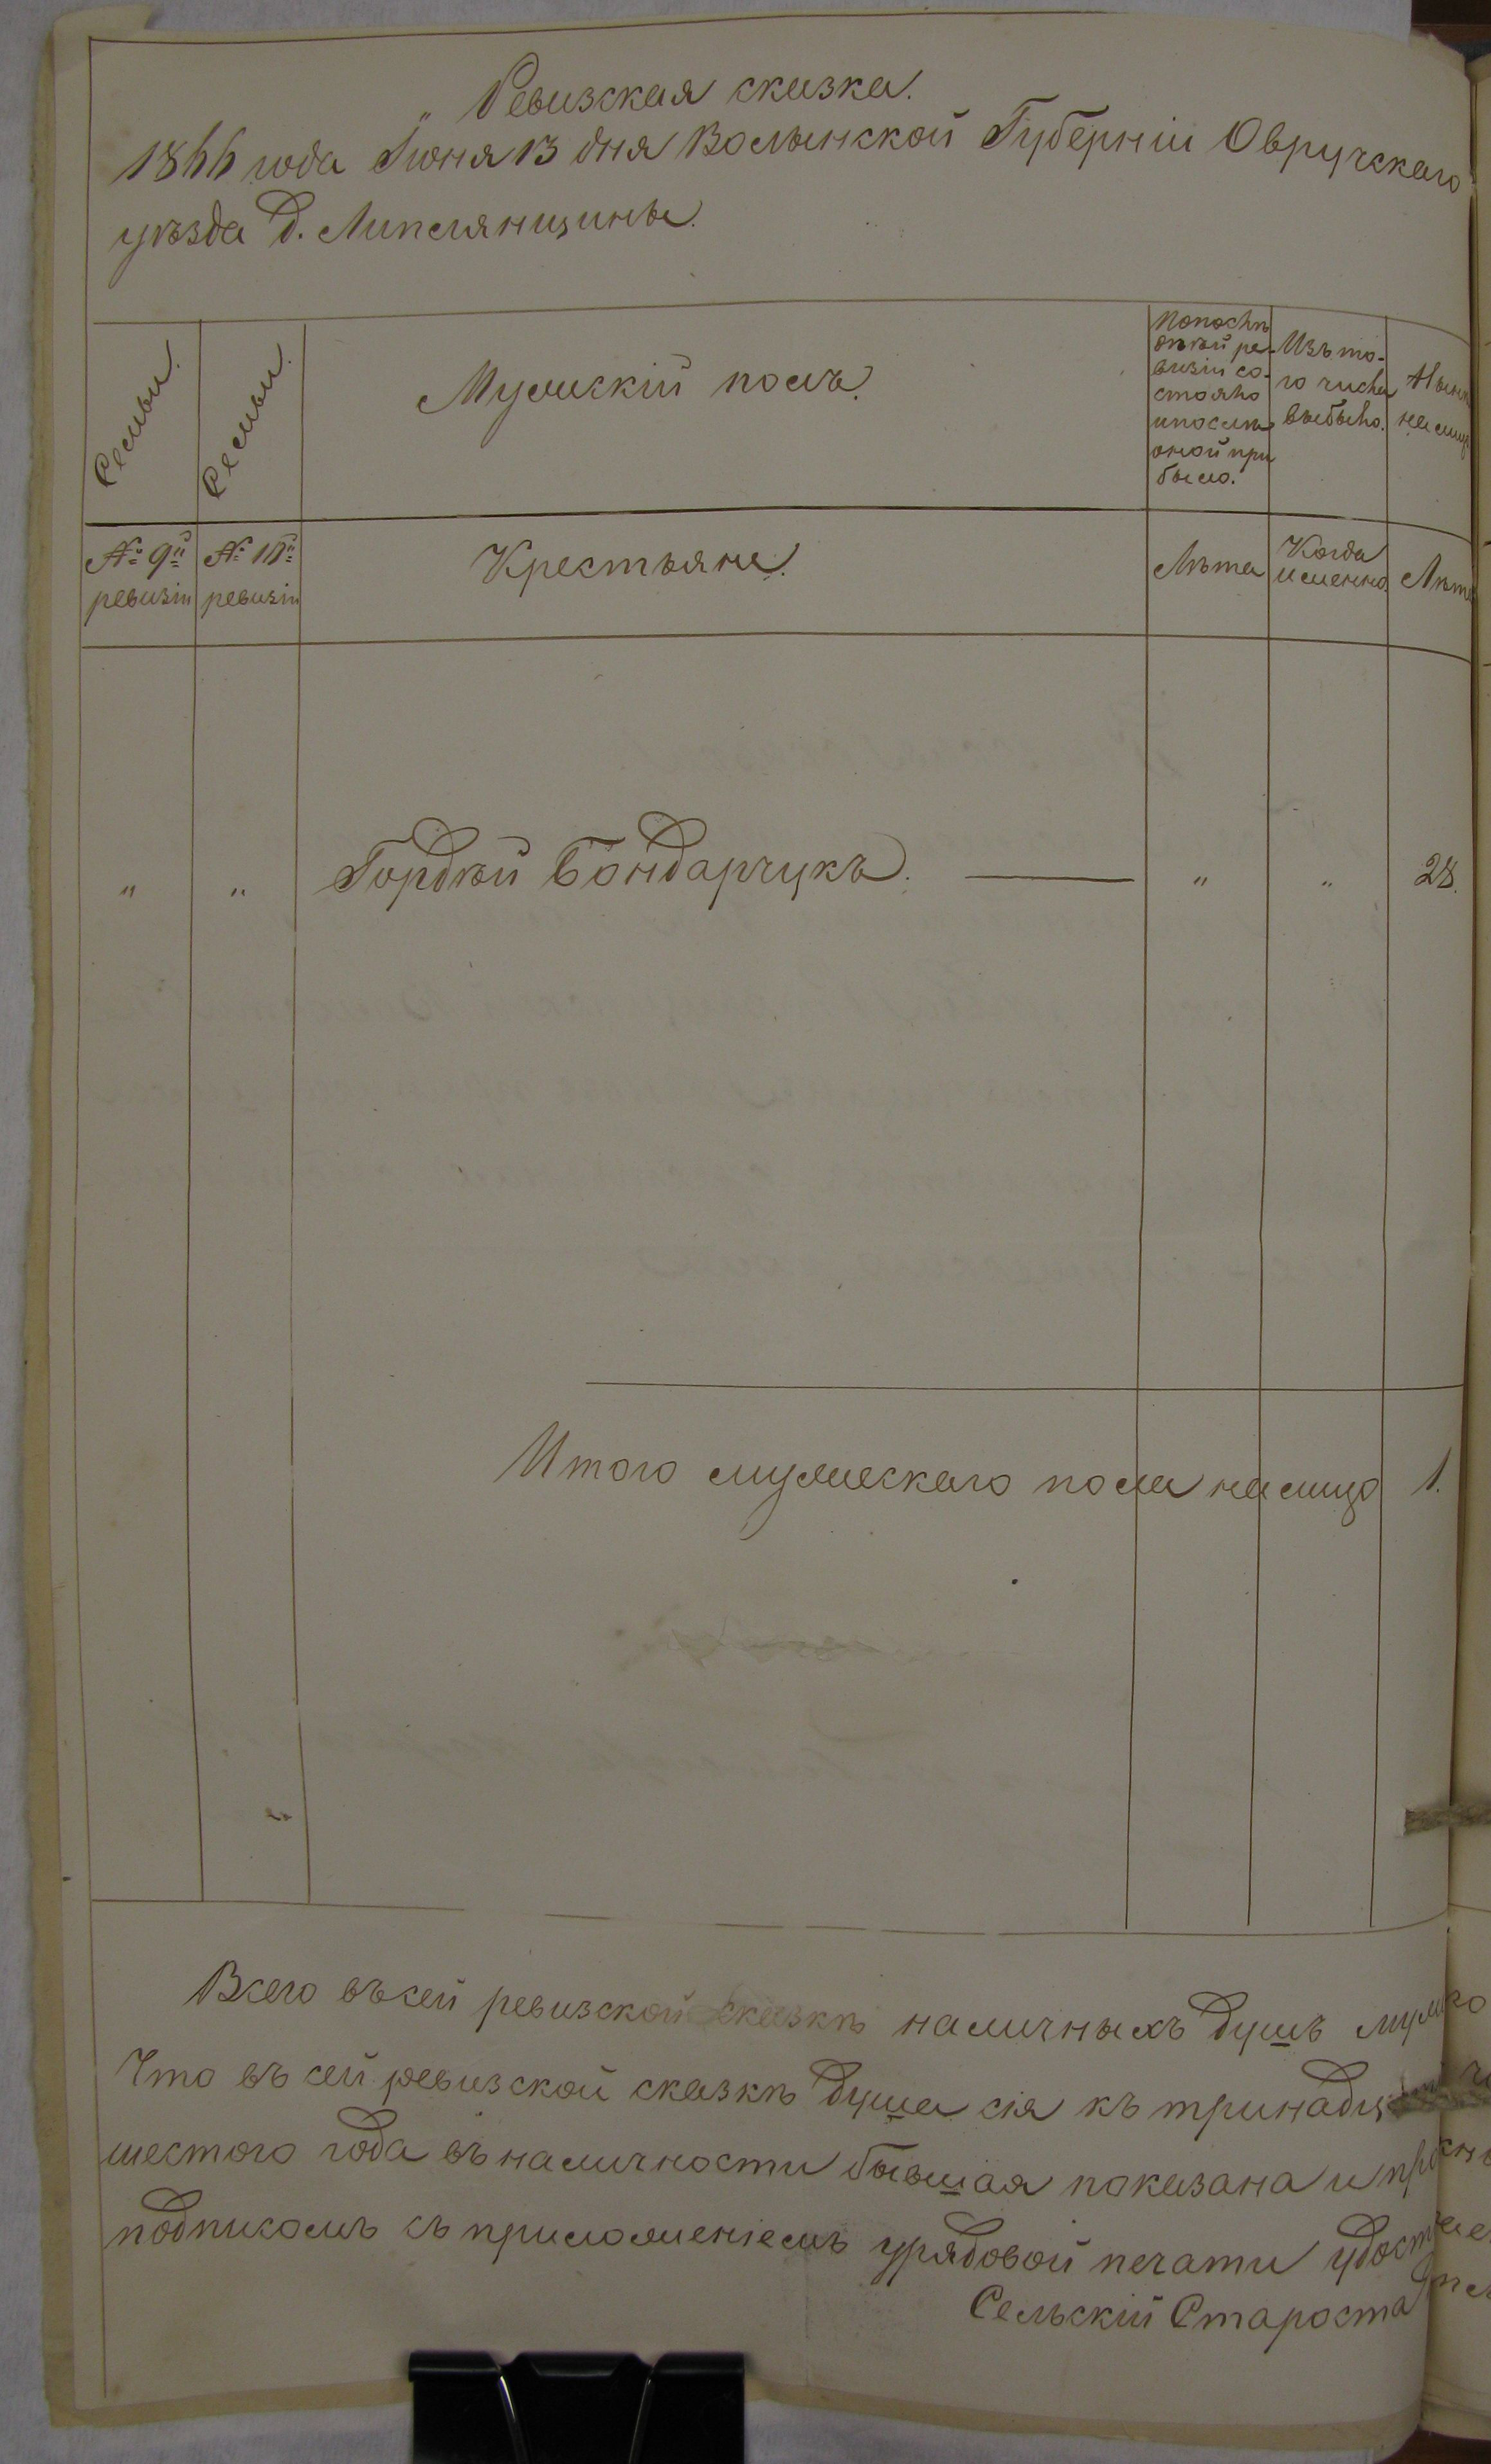 „ Ревизская сказка.
1866 года Іюня 13 дня Волынской Губерніи Овручскаго
уѣзда д. Липлянщины.
Семьи.
Семьи.
Мужскій полъ.
По послѣ
дней ре-
визіи со-
стояло
и послѣ
оной при
было.
Изъ то-
го числа
выбыло.
Нынѣ
на лицо
№ 9й
ревизіи
№ 10й
ревизіи
Крестьяне.
Лѣта
Когда
именно.
Лѣта
„ „ Гордѣй Бондарчукъ. — „ „ 28.
Итого мужескаго пола на лицо 1.
Всего въ сей ревизской сказкѣ наличныхъ душъ
Что въ сей ревизской сказкѣ душа сія къ
шестого года въ наличности бывшая показана и
подписомъ съ приложеніемъ урядовой печати
Сельскій Староста